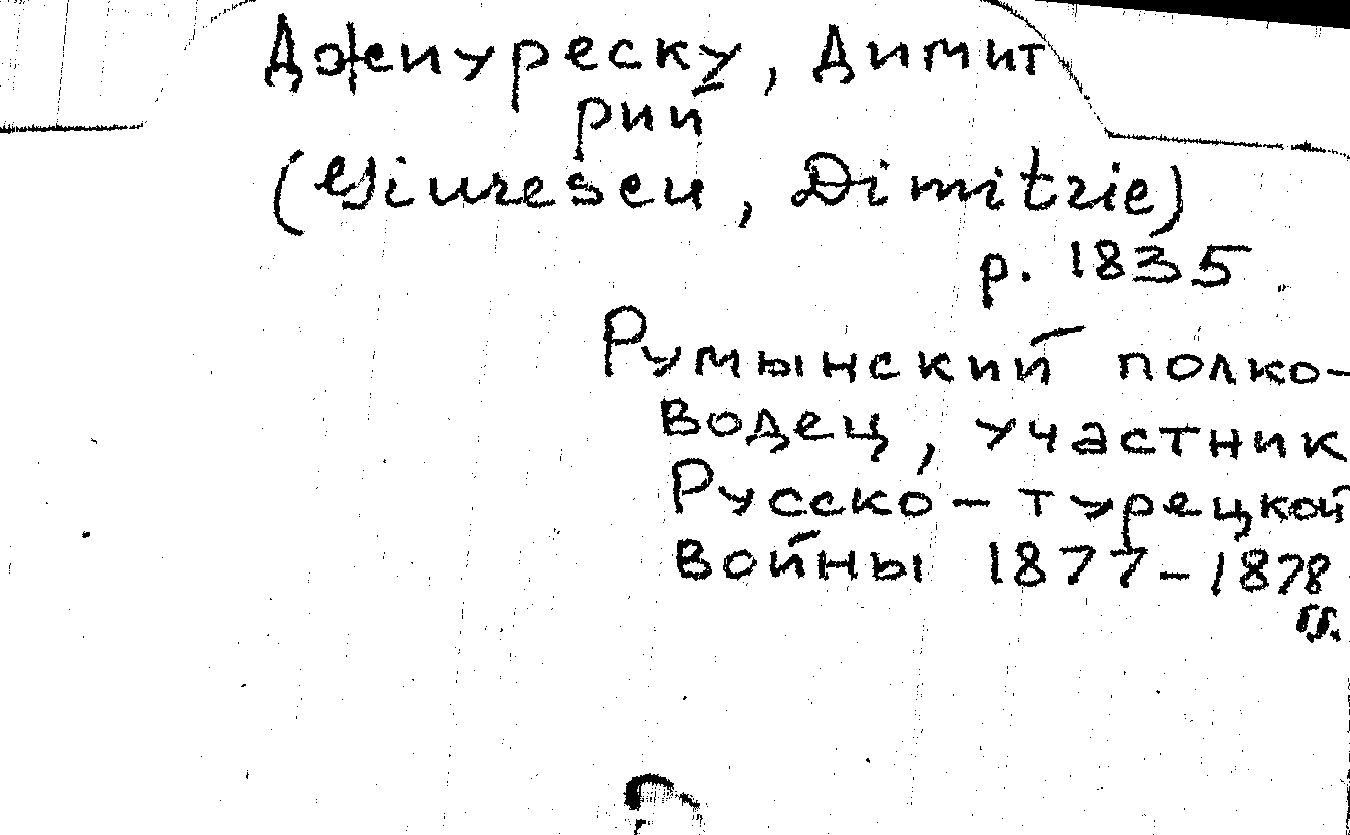 Джиуреску, Димит
рий
(Giurescu, Dimitrie)
р. 1835
Румынский полко-
водец, участник
Русско-турецкой
войны 1877-1878
гг.